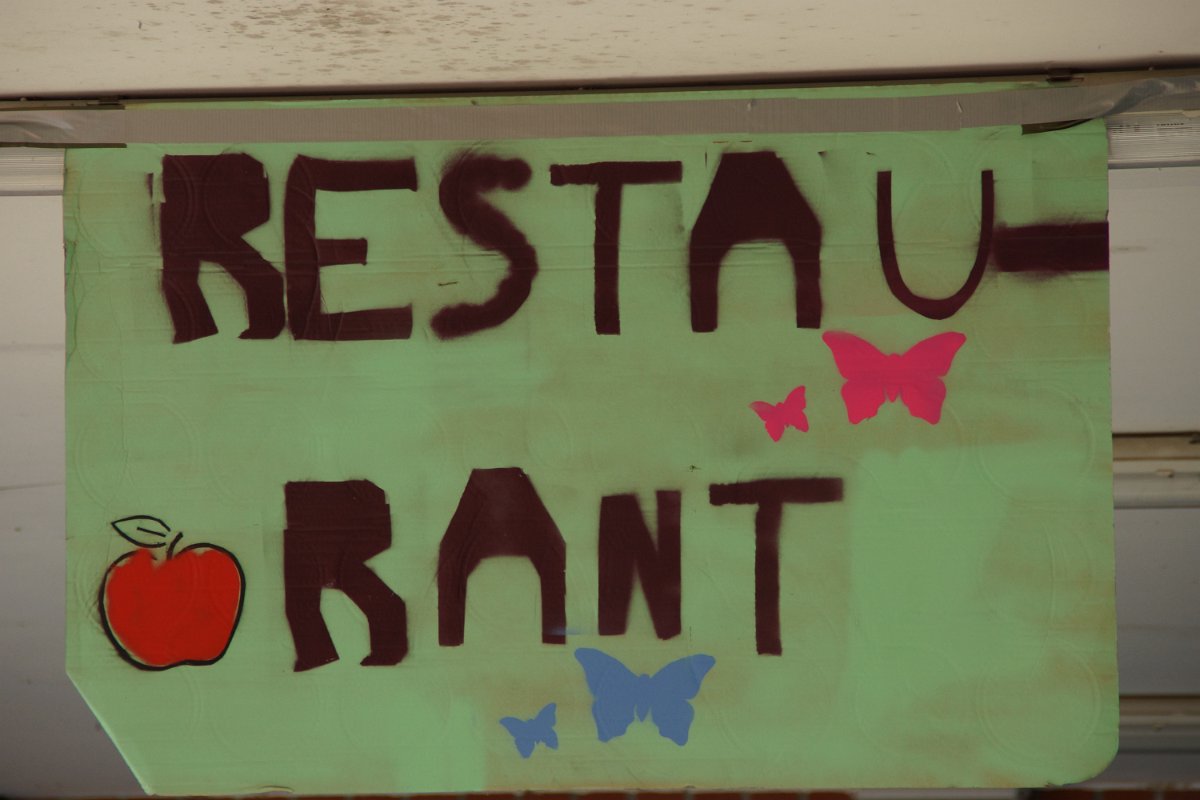 RESTAU-
RANT